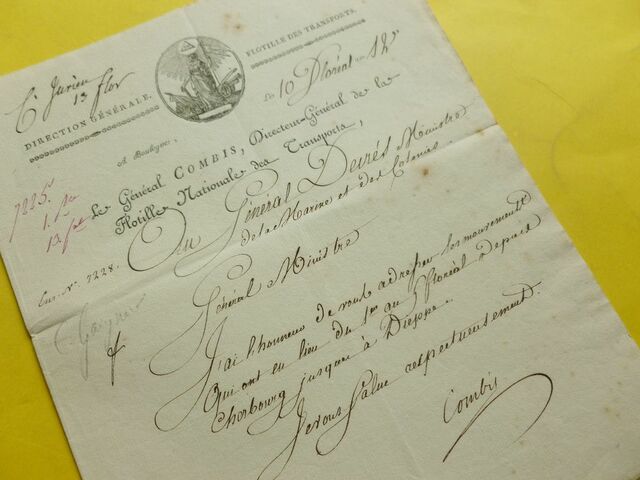 FLOTILLE DES TRANSPORTS.
Cn Jurien
13 flor
DIRECTION GÉNÉRALE.
Le 10 Floréal an 12e
A Boulogne,
Le Général COMBIS, Directeur-Général de la
Flotille Nationale des Transports,
7225.
13
Au Général Decrés Ministre
de la Marine et des Colonies.
Enr. N.º 7228.
Général Ministre
J'ai l'honneur de vous adresser les mouvements
Qui ont eu lieu du 1er au 5 floréal Depuis
Cherbourg jusques à Dieppe.
Je vous salue respectueusement.
Combis